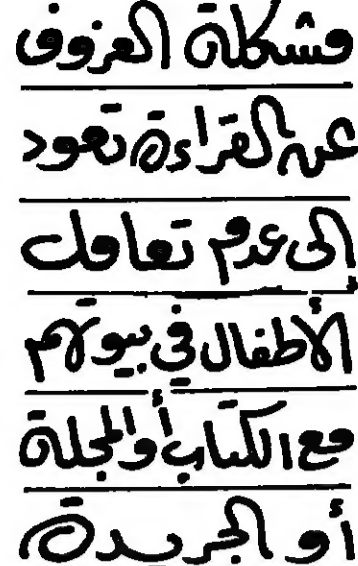 مشكلة العزوف
عن القراءة تعود
إلى عدم تعامل
الأطفال في بيوتهم
مع الكتاب أو المجلة
أو الجريدة